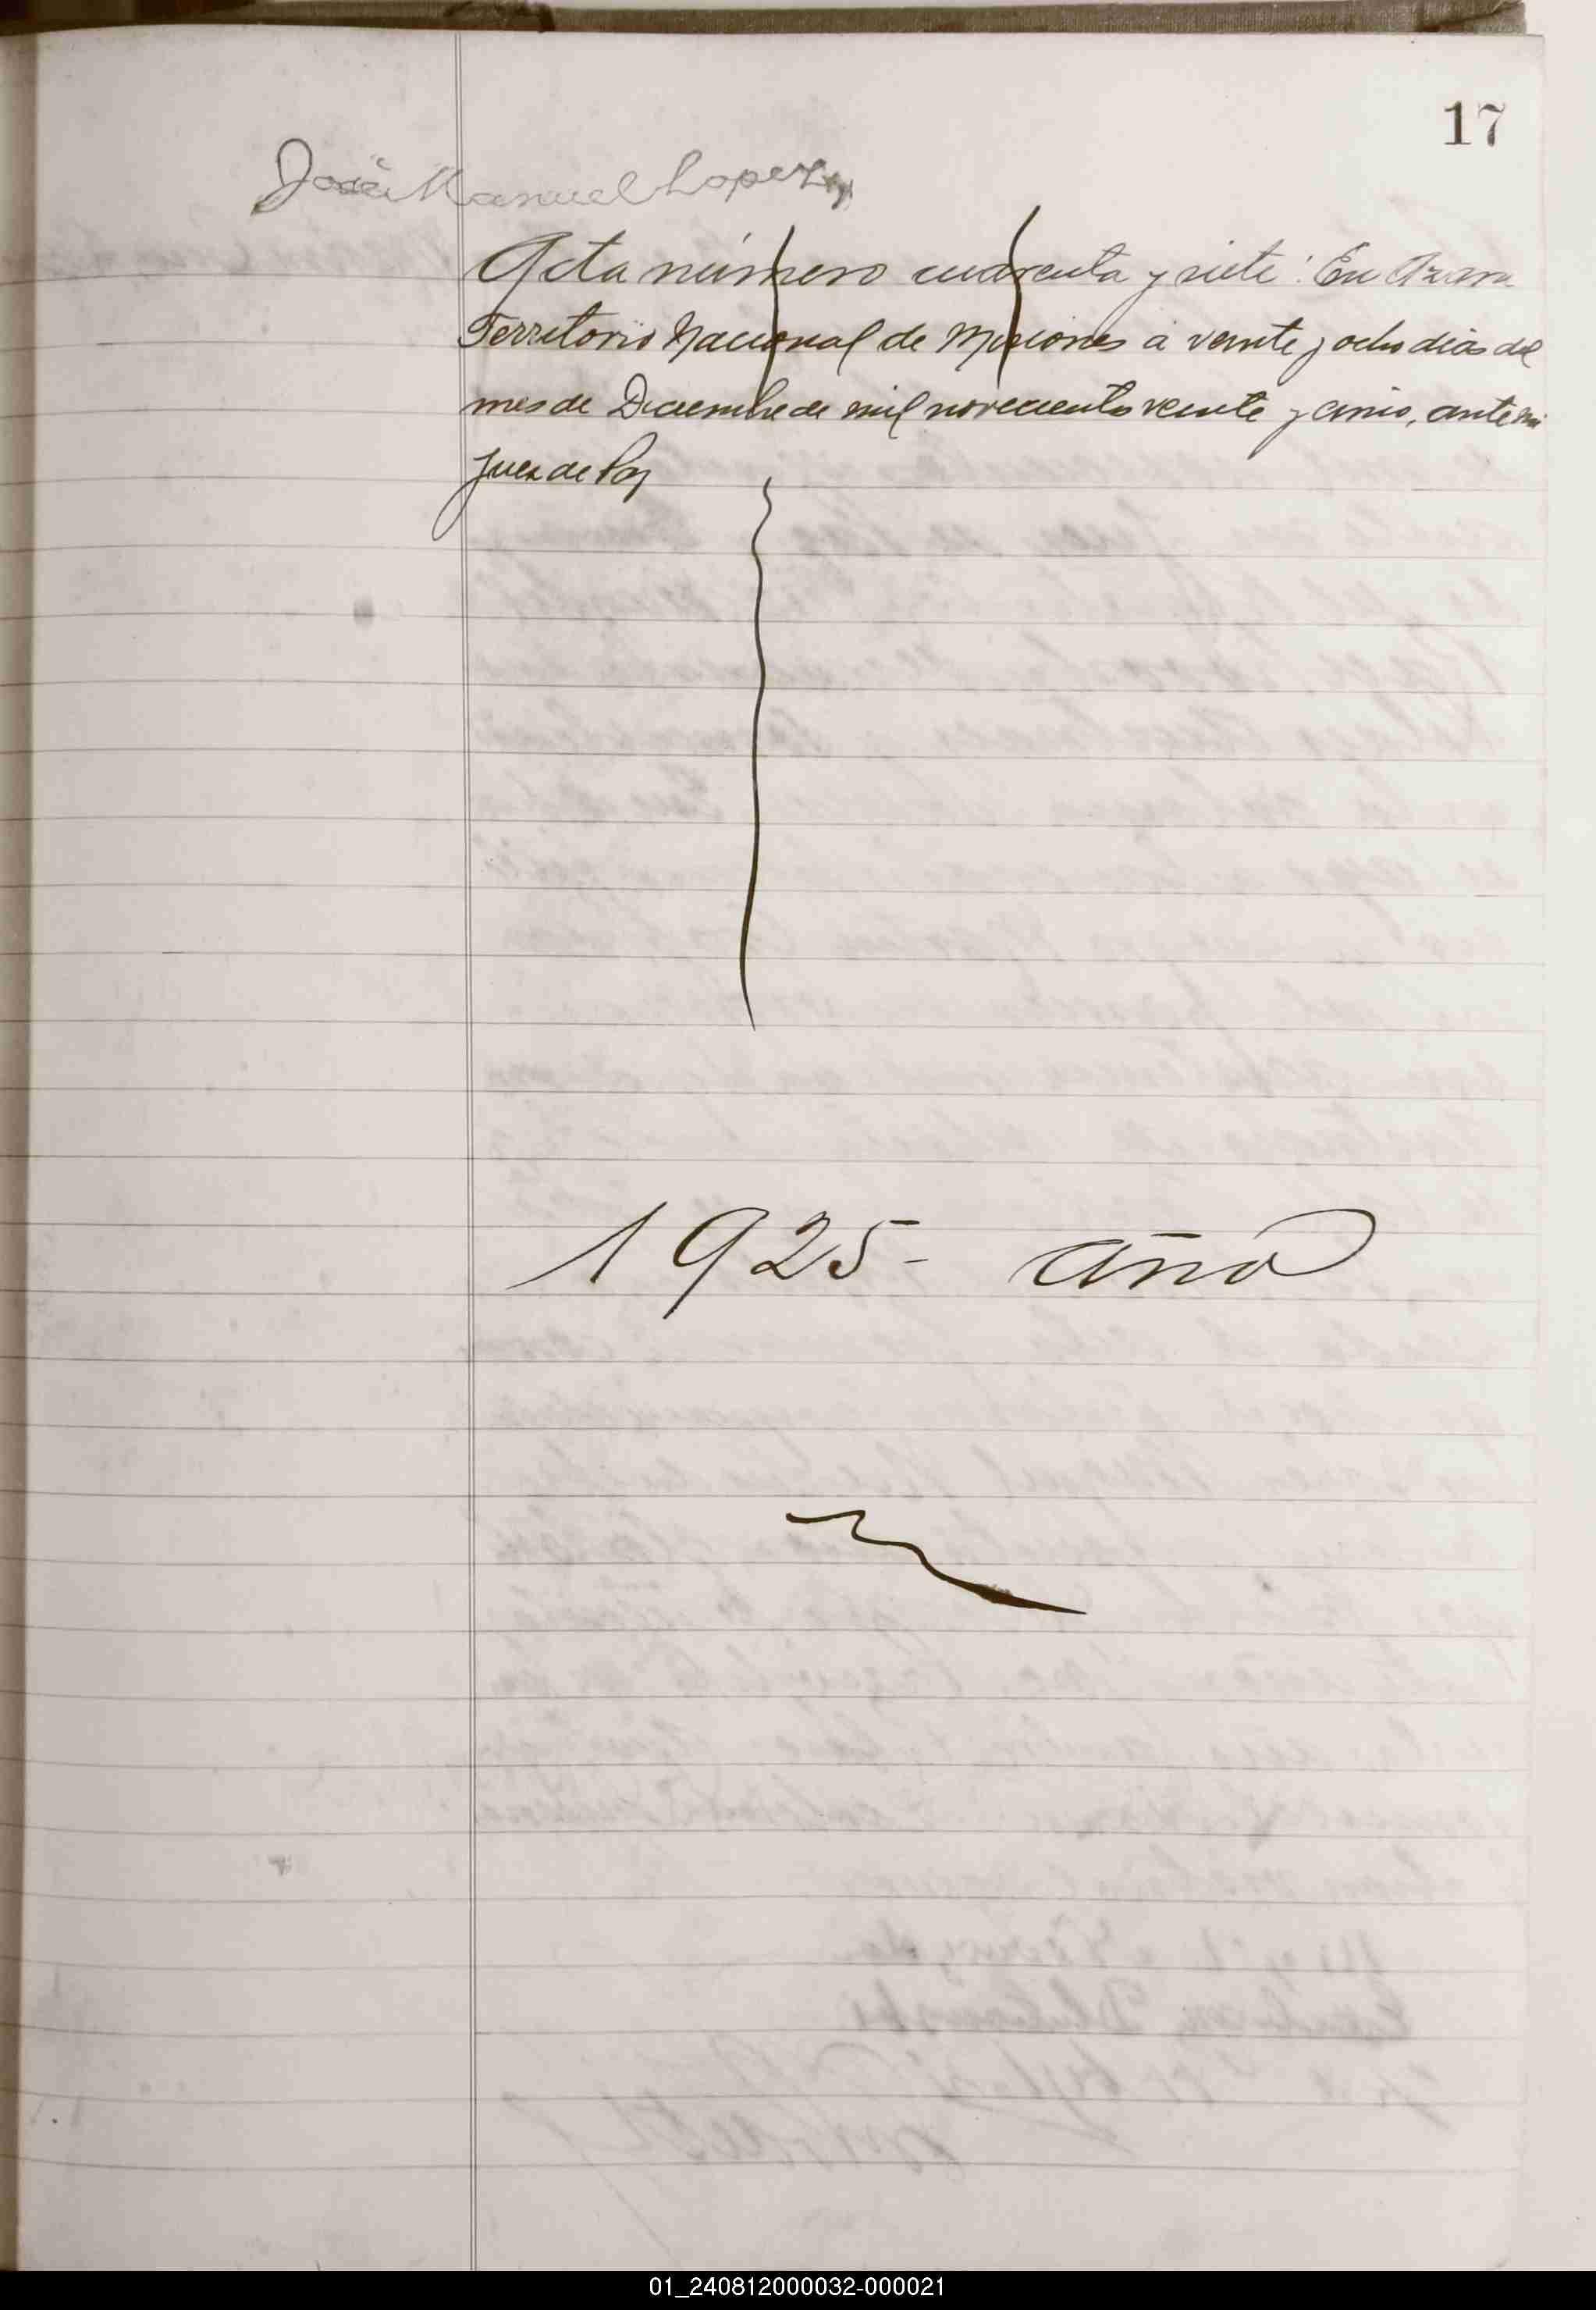 17
José Manuel Lopez
Acta número cuarenta y siete: En Azara
Territorio Nacional de Misiones a veinte y ocho dias del
mes de Diciembre de mil novecientos veinte y cinco, ante mi
Juez de Paz
1925- año
01_240812000032-000021